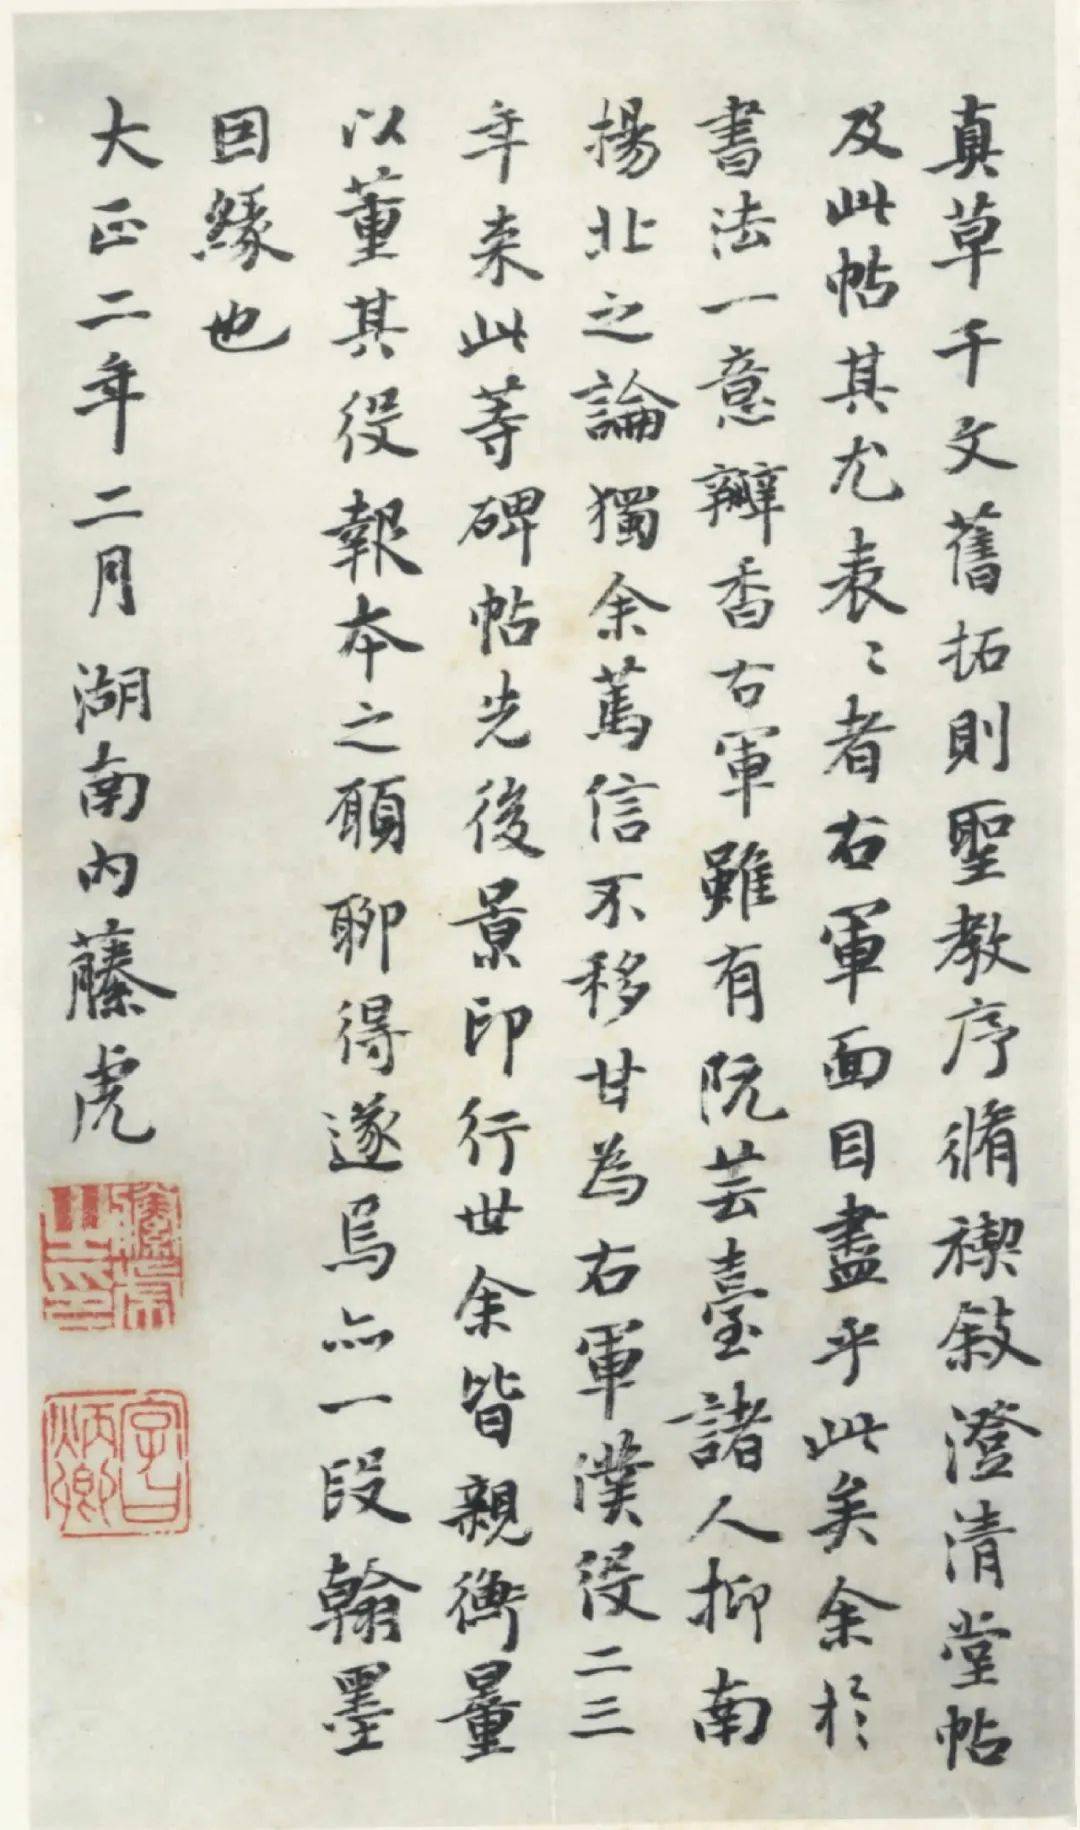 真草千文舊拓則聖教序脩禊敘澄清堂帖
及此帖其尤表〻者右軍面目盡乎此矣余於
書法一意瓣香右軍雖有阮芸臺諸人抑南
揚北之論獨余篤信不移甘為右軍僕役二三
年来此等碑帖先後景印行世余皆親衡量
以董其役報本之願聊得遂焉亦一段翰墨
因緣也
大正二年二月湖南内藤虎
字曰炳卿